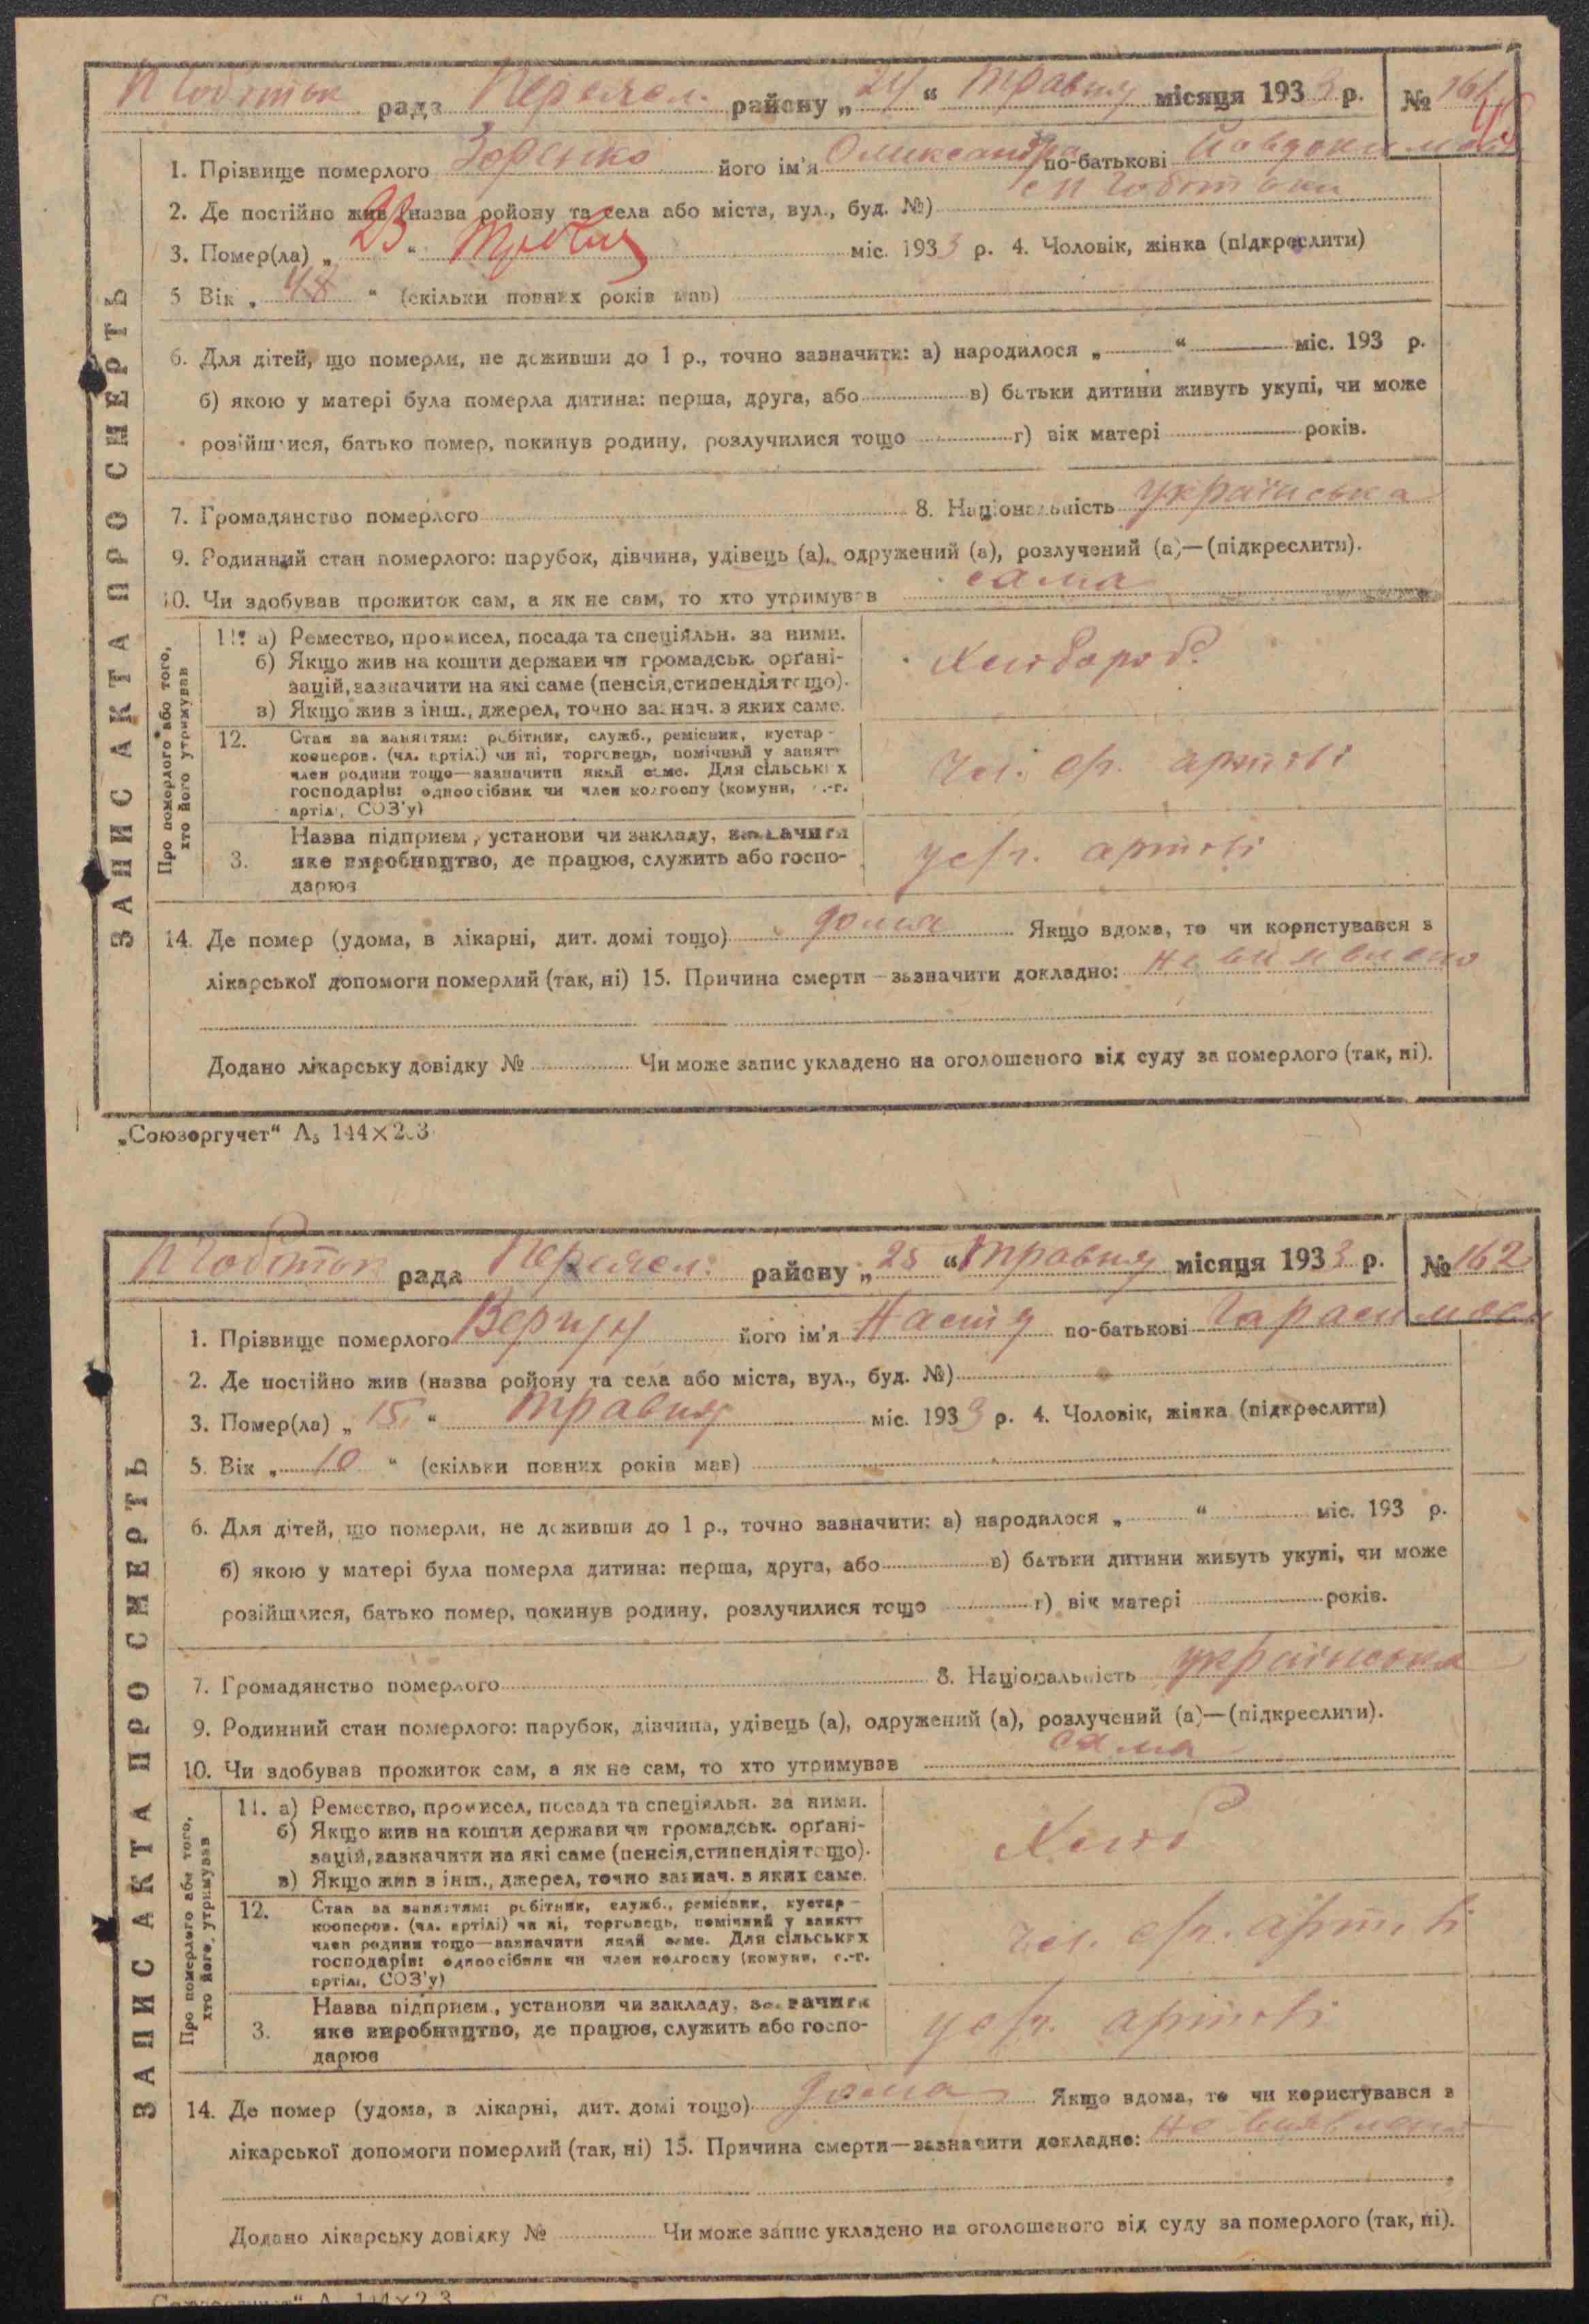 рада Переясл. району „24“ травня місяця 1933 р. № 161
ЗАПИС АКТА ПРО СМЕРТЬ
1. Прізвище померлого Зоренко його ім'я Олександра по-батькові
2. Де постійно жив (назва ройону та села або міста, вул., буд. №)
3. Помер(ла) „23“ травня міс. 1933 р. 4. Чоловік, жінка (підкреслити)
5 Вік „48“ (скільки повних років мав)
6. Для дітей, що померли, не доживши до 1 р., точно зазначити: а) народилося „ “ міс. 193 р.
б) якою у матері була померла дитина: перша, друга, або в) батьки дитини живуть укупі, чи може
розійшлися, батько помер, покинув родину, розлучилися тощо г) вік матері років.
7. Громадянство померлого 8. Національність українська
9. Родинний стан померлого: парубок, дівчина, удівець (а), одружений (а), розлучений (а)—(підкреслити).
10. Чи здобував прожиток сам, а як не сам, то хто утримував сама
Про померлого або того, хто його утримував
11. а) Ремество, промисел, посада та спеціяльн. за ними.
б) Якщо жив на кошти держави чи громадськ. орґані-
зацій, зазначити на які саме (пенсія, стипендія тощо).
в) Якщо жив з інш., джерел, точно зазнач. з яких саме.
Хлібороб.
12. Стан за заняттям: робітник, служб., ремісник, кустар-
кооперов. (чл. артілі) чи ні, торговець, помічний у занятт
член родини тощо—зазначити який саме. Для сільських
господарів: одноосібник чи член колгоспу (комуни, с.-г.
артілі, СОЗ'у)
чл. с/г. артілі
3. Назва підприєм., установи чи закладу, зазначити
яке виробництво, де працює, служить або госпо-
дарює
у с/г. артілі
14. Де помер (удома, в лікарні, дит. домі тощо) дома Якщо вдома, то чи користувався з
лікарської допомоги померлий (так, ні) 15. Причина смерти—зазначити докладно: не виявлено
Додано лікарську довідку № Чи може запис укладено на оголошеного від суду за померлого (так, ні).
„Союзоргучет“ А5 144×203
рада Переясл. району „25“ травня місяця 1933 р. № 162
ЗАПИС АКТА ПРО СМЕРТЬ
1. Прізвище померлого Вергун його ім'я Настя по-батькові Гарасимовн
2. Де постійно жив (назва ройону та села або міста, вул., буд. №)
3. Помер(ла) „15“ травня міс. 1933 р. 4. Чоловік, жінка (підкреслити)
5. Вік „10“ (скільки повних років мав)
6. Для дітей, що померли, не доживши до 1 р., точно зазначити: а) народилося „ “ міс. 193 р.
б) якою у матері була померла дитина: перша, друга, або в) батьки дитини живуть укупі, чи може
розійшлися, батько помер, покинув родину, розлучилися тощо г) вік матері років.
7. Громадянство померлого 8. Національність українська
9. Родинний стан померлого: парубок, дівчина, удівець (а), одружений (а), розлучений (а)—(підкреслити).
10. Чи здобував прожиток сам, а як не сам, то хто утримував сама
Про померлого або того, хто його утримував
11. а) Ремество, промисел, посада та спеціяльн. за ними.
б) Якщо жив на кошти держави чи громадськ. орґані-
зацій, зазначити на які саме (пенсія, стипендія тощо).
в) Якщо жив з інш., джерел, точно зазнач. з яких саме.
Хліб
12. Стан за заняттям: робітник, служб., ремісник, кустар-
кооперов. (чл. артілі) чи ні, торговець, помічний у занятт
член родини тощо—зазначити який саме. Для сільських
господарів: одноосібник чи член колгоспу (комуни, с.-г.
артілі, СОЗ'у)
чл. с/г. артілі
3. Назва підприєм., установи чи закладу, зазначити
яке виробництво, де працює, служить або госпо-
дарює
у с/г. артілі
14. Де помер (удома, в лікарні, дит. домі тощо) дома Якщо вдома, то чи користувався з
лікарської допомоги померлий (так, ні) 15. Причина смерти—зазначити докладно: не виявлено
Додано лікарську довідку № Чи може запис укладено на оголошеного від суду за померлого (так, ні).